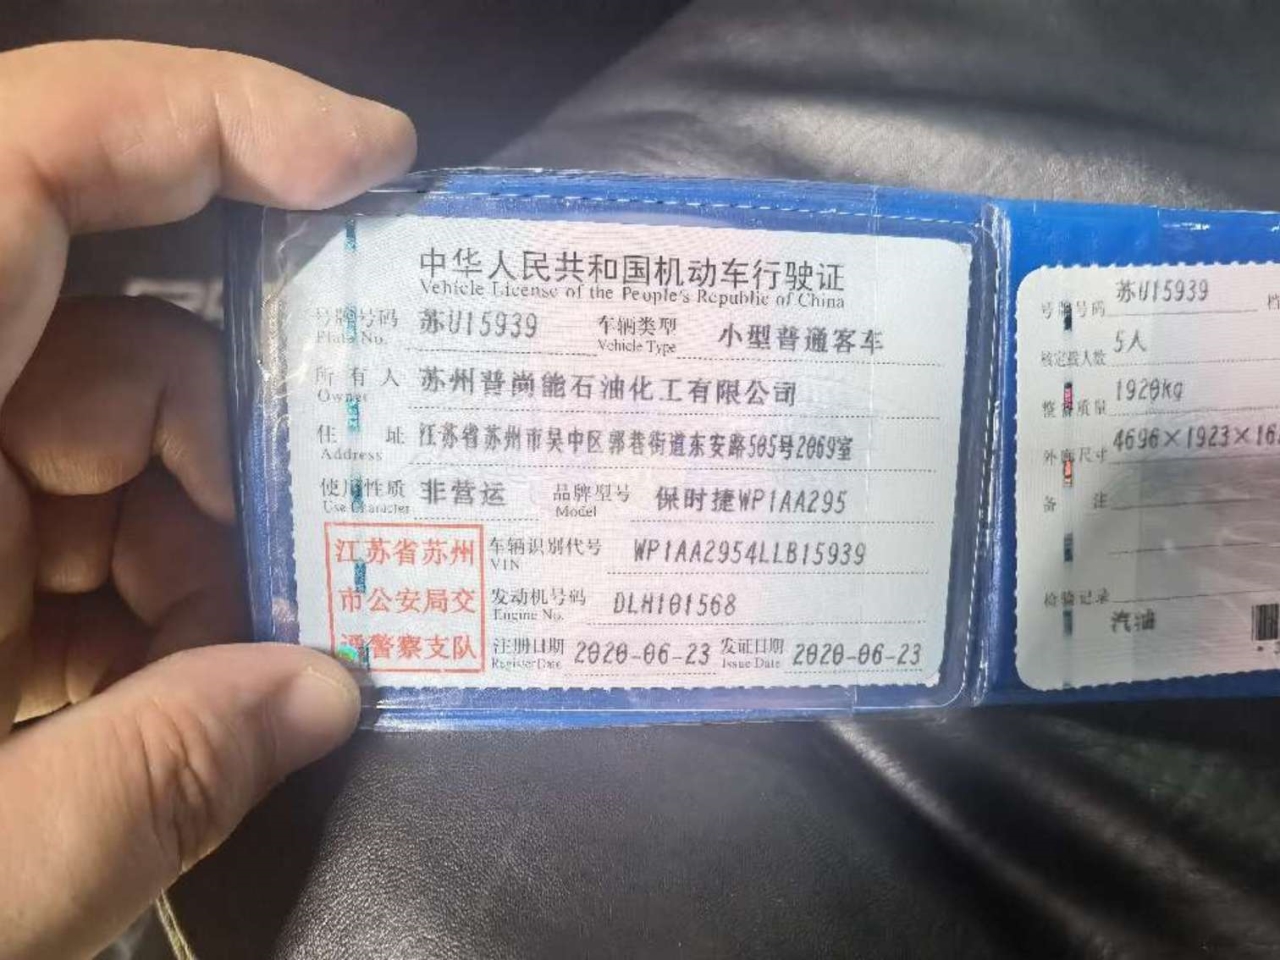 中华人民共和国机动车行驶证
Vehicle License of the People's Republic of China
号牌号码 苏U15939 车辆类型 小型普通客车
Plate No. Vehicle Type
所有人 苏州普尚能石油化工有限公司
Owner
住址 江苏省苏州市吴中区郭巷街道东安路505号2069室
Address
使用性质 非营运 品牌型号 保时捷WP1AA295
Use Character Model
江苏省苏州
市公安局交
通警察支队
车辆识别代号 WP1AA2954LLB15939
VIN
发动机号码 DLH101568
Engine No.
注册日期 2020-06-23 发证日期 2020-06-23
Register Date Issue Date
号牌号码 苏U15939 档
核定载人数 5人
整备质量 1920kg
外廓尺寸 4696×1923×16
备注
检验记录
汽油